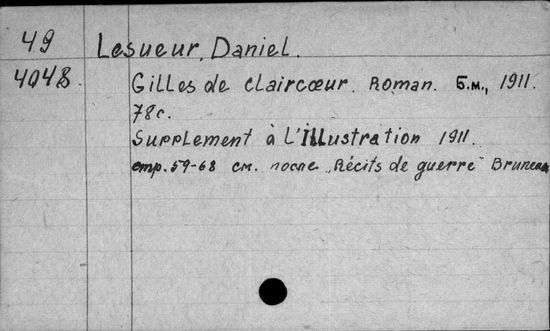 49 Lesueur, Daniel.
4048 Gilles de Claircœur. Roman. Б.м., 1911.
78с.
Supplement à L'Illustration 1911.
стр. 59-68 см. после „Récits de guerre" Bruneau